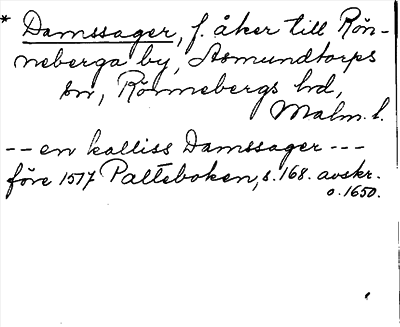 * Damssager, f. åker till Rön-
neberga by, Asmundtorps
sn, Rönnebergs hd,
Malm. l.
-- en kalliss Damssager ---
före 1517 Palteboken, s. 168. avskr.
o. 1650.